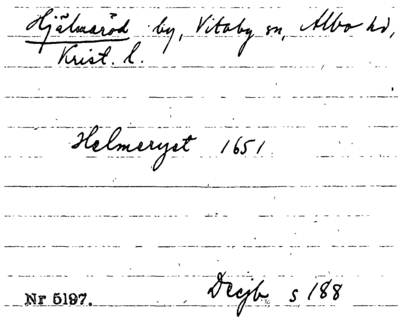 Hjälmaröd by, Vitaby sn, Albo hd,
Krist. l.
Helmeryst 1651
Decjb s 188
Nr 5197.